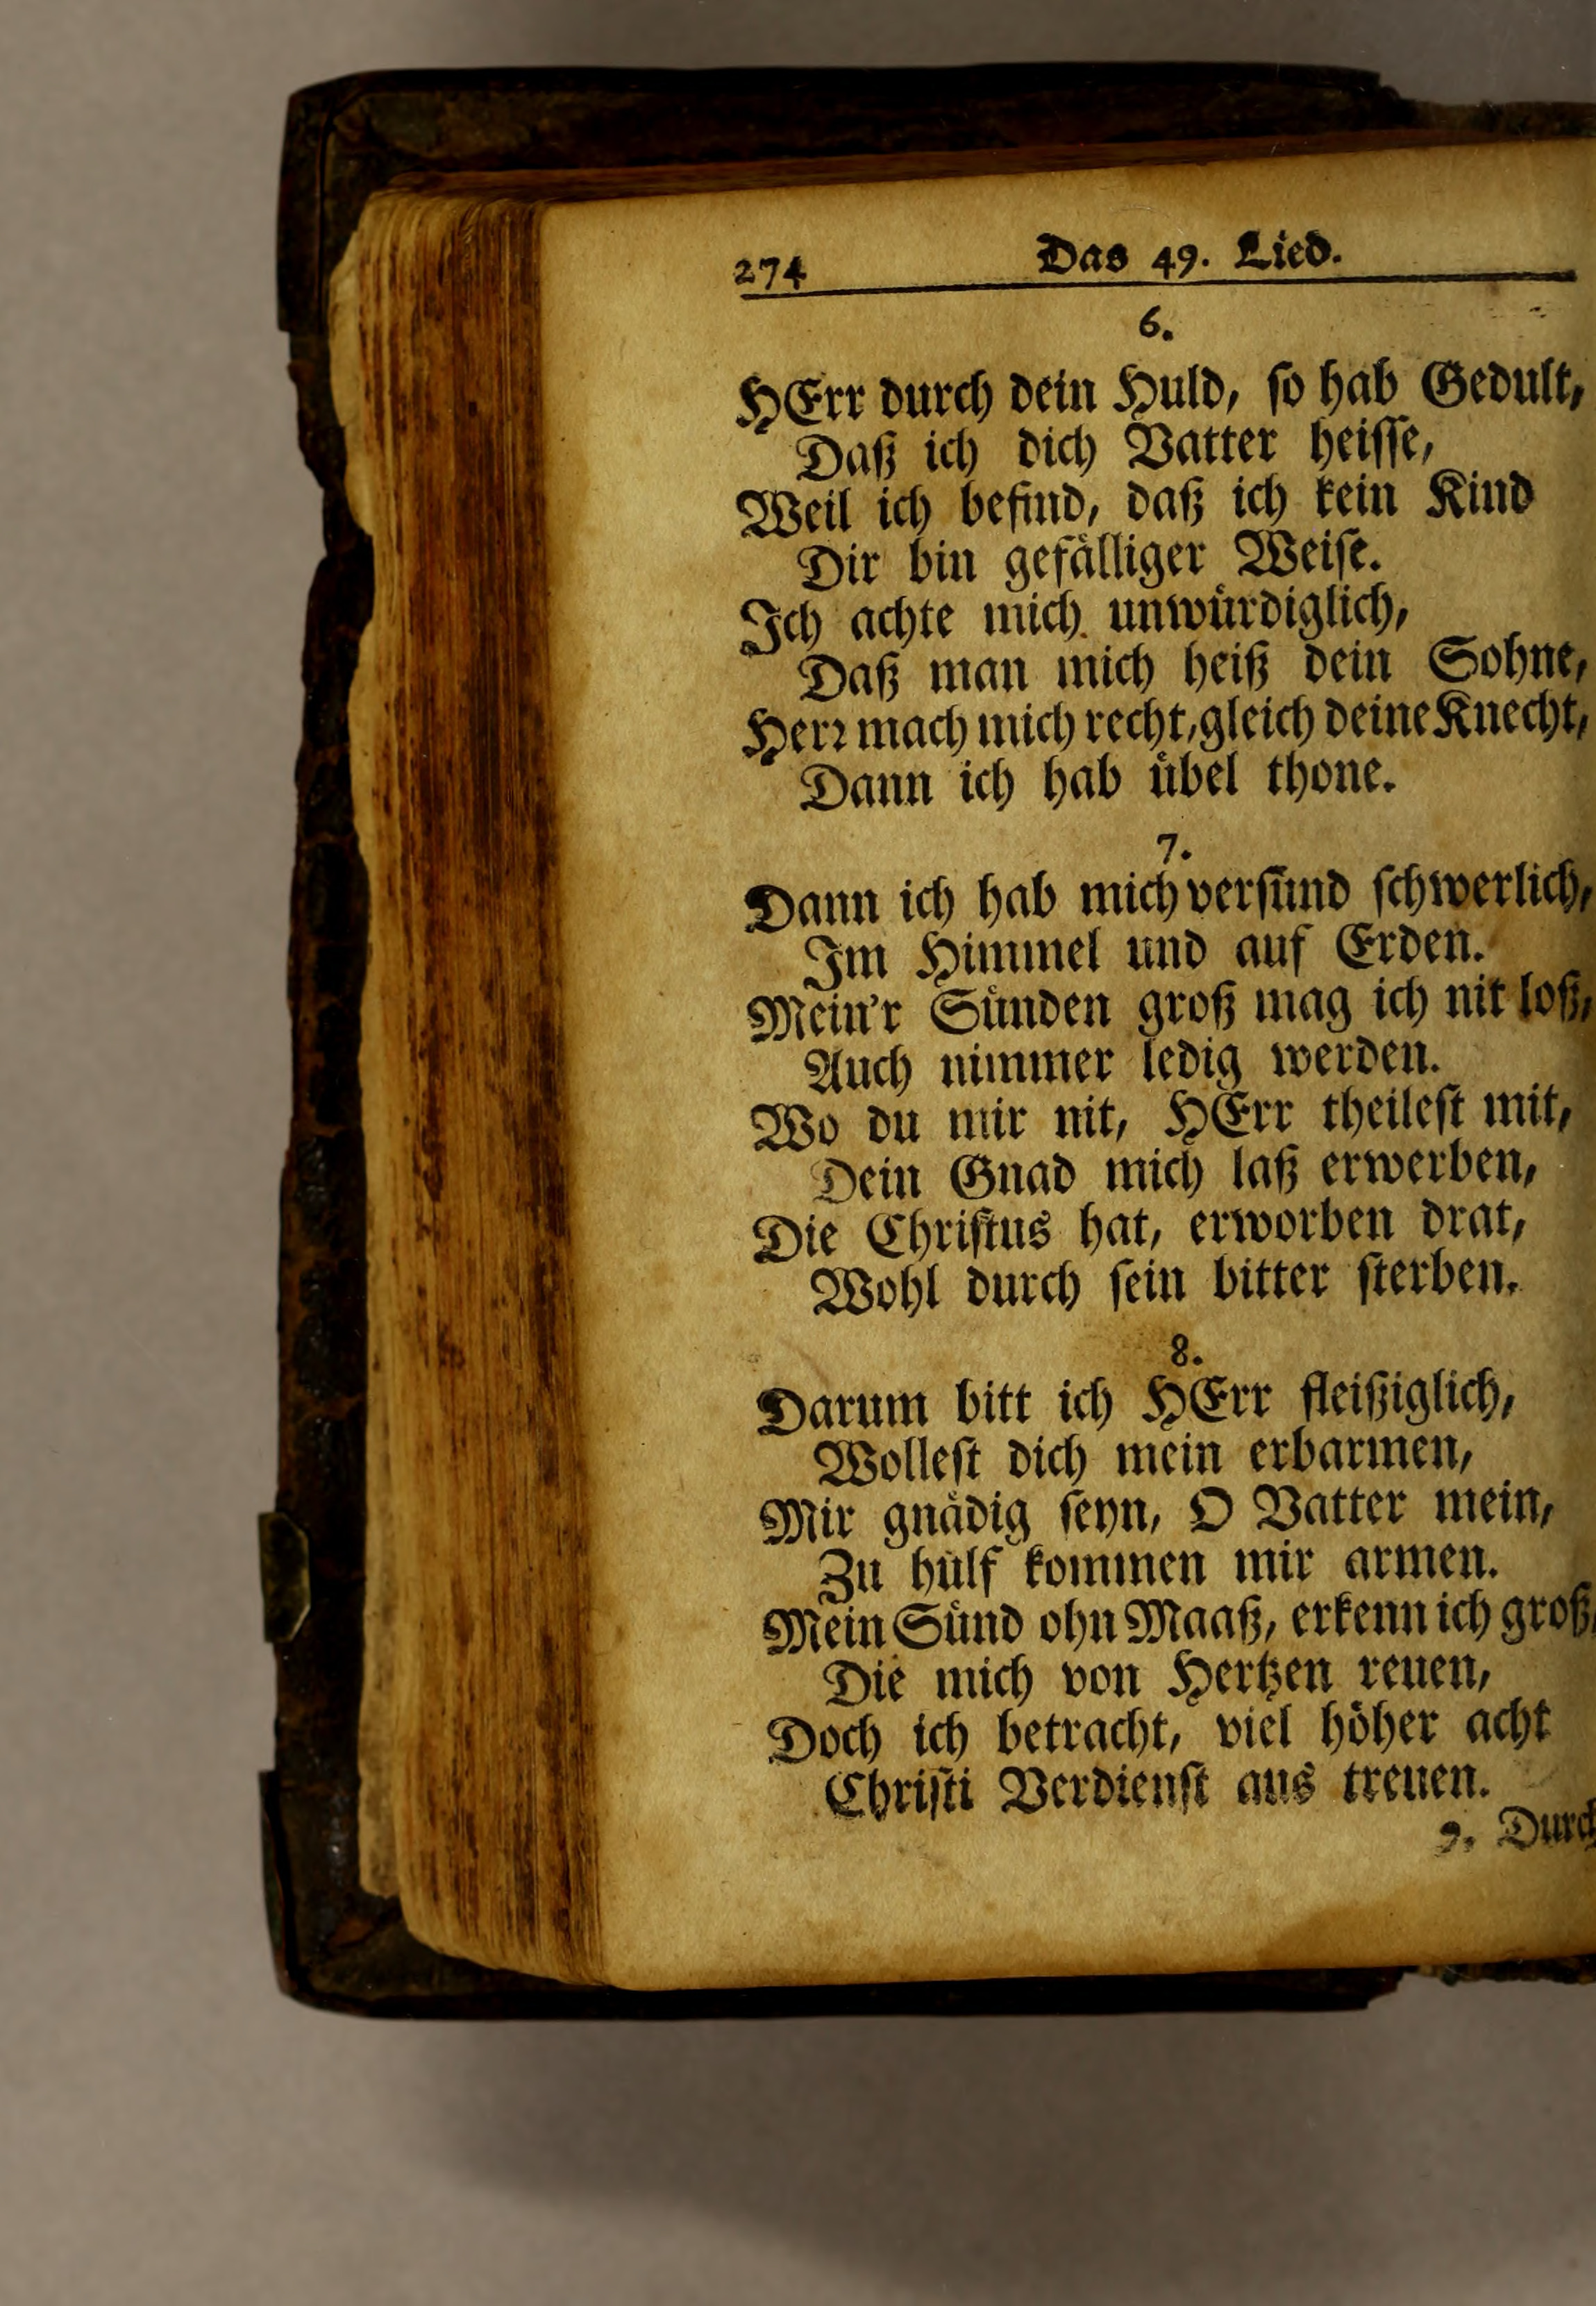 274 Das 49. Lied.
6.
HErr durch dein Huld, so hab Gedult,
Daß ich dich Vatter heisse,
Weil ich befind, daß ich kein Kind
Dir bin gefälliger Weise.
Ich achte mich unwürdiglich,
Daß man mich heiß dein Sohne,
Herr mach mich recht, gleich deine Knecht,
Dann ich hab übel thone.
7.
Dann ich hab mich versünd schwerlich,
Im Himmel und auf Erden.
Mein'r Sünden groß mag ich nit loß,
Auch nimmer ledig werden.
Wo du mir nit, HErr theilest mit,
Dein Gnad mich laß erwerben,
Die Christus hat, erworben drat,
Wohl durch sein bitter sterben.
8.
Darum bitt ich HErr fleißiglich,
Wollest dich mein erbarmen,
Mir gnädig seyn, O Vatter mein,
Zu hülf kommen mir armen.
Mein Sünd ohn Maaß, erkenn ich groß,
Die mich von Hertzen reuen,
Doch ich betracht, viel höher acht
Christi Verdienst aus treuen.
9. Durch